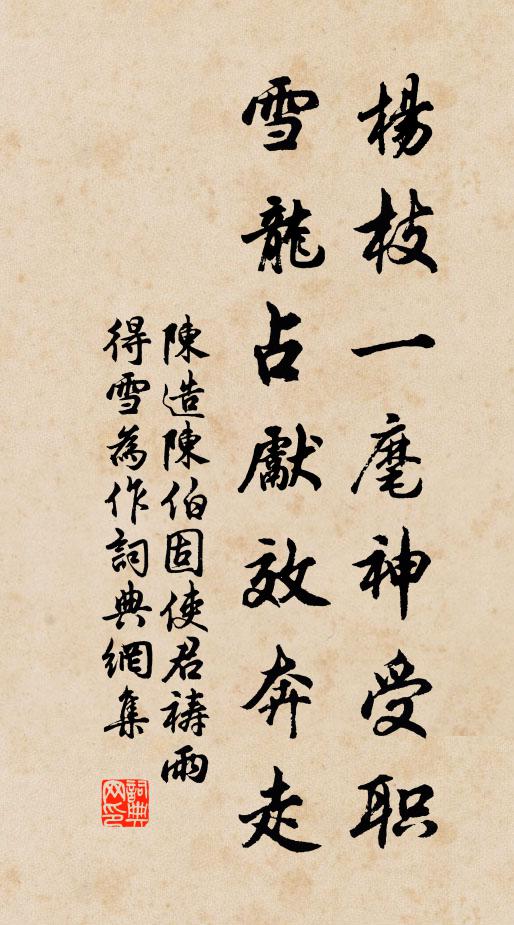 楊枝一麾神受职
雪龍占獻效奔走
陳造陳伯固使君禱雨
得雪為作詞典網集
詞典網印